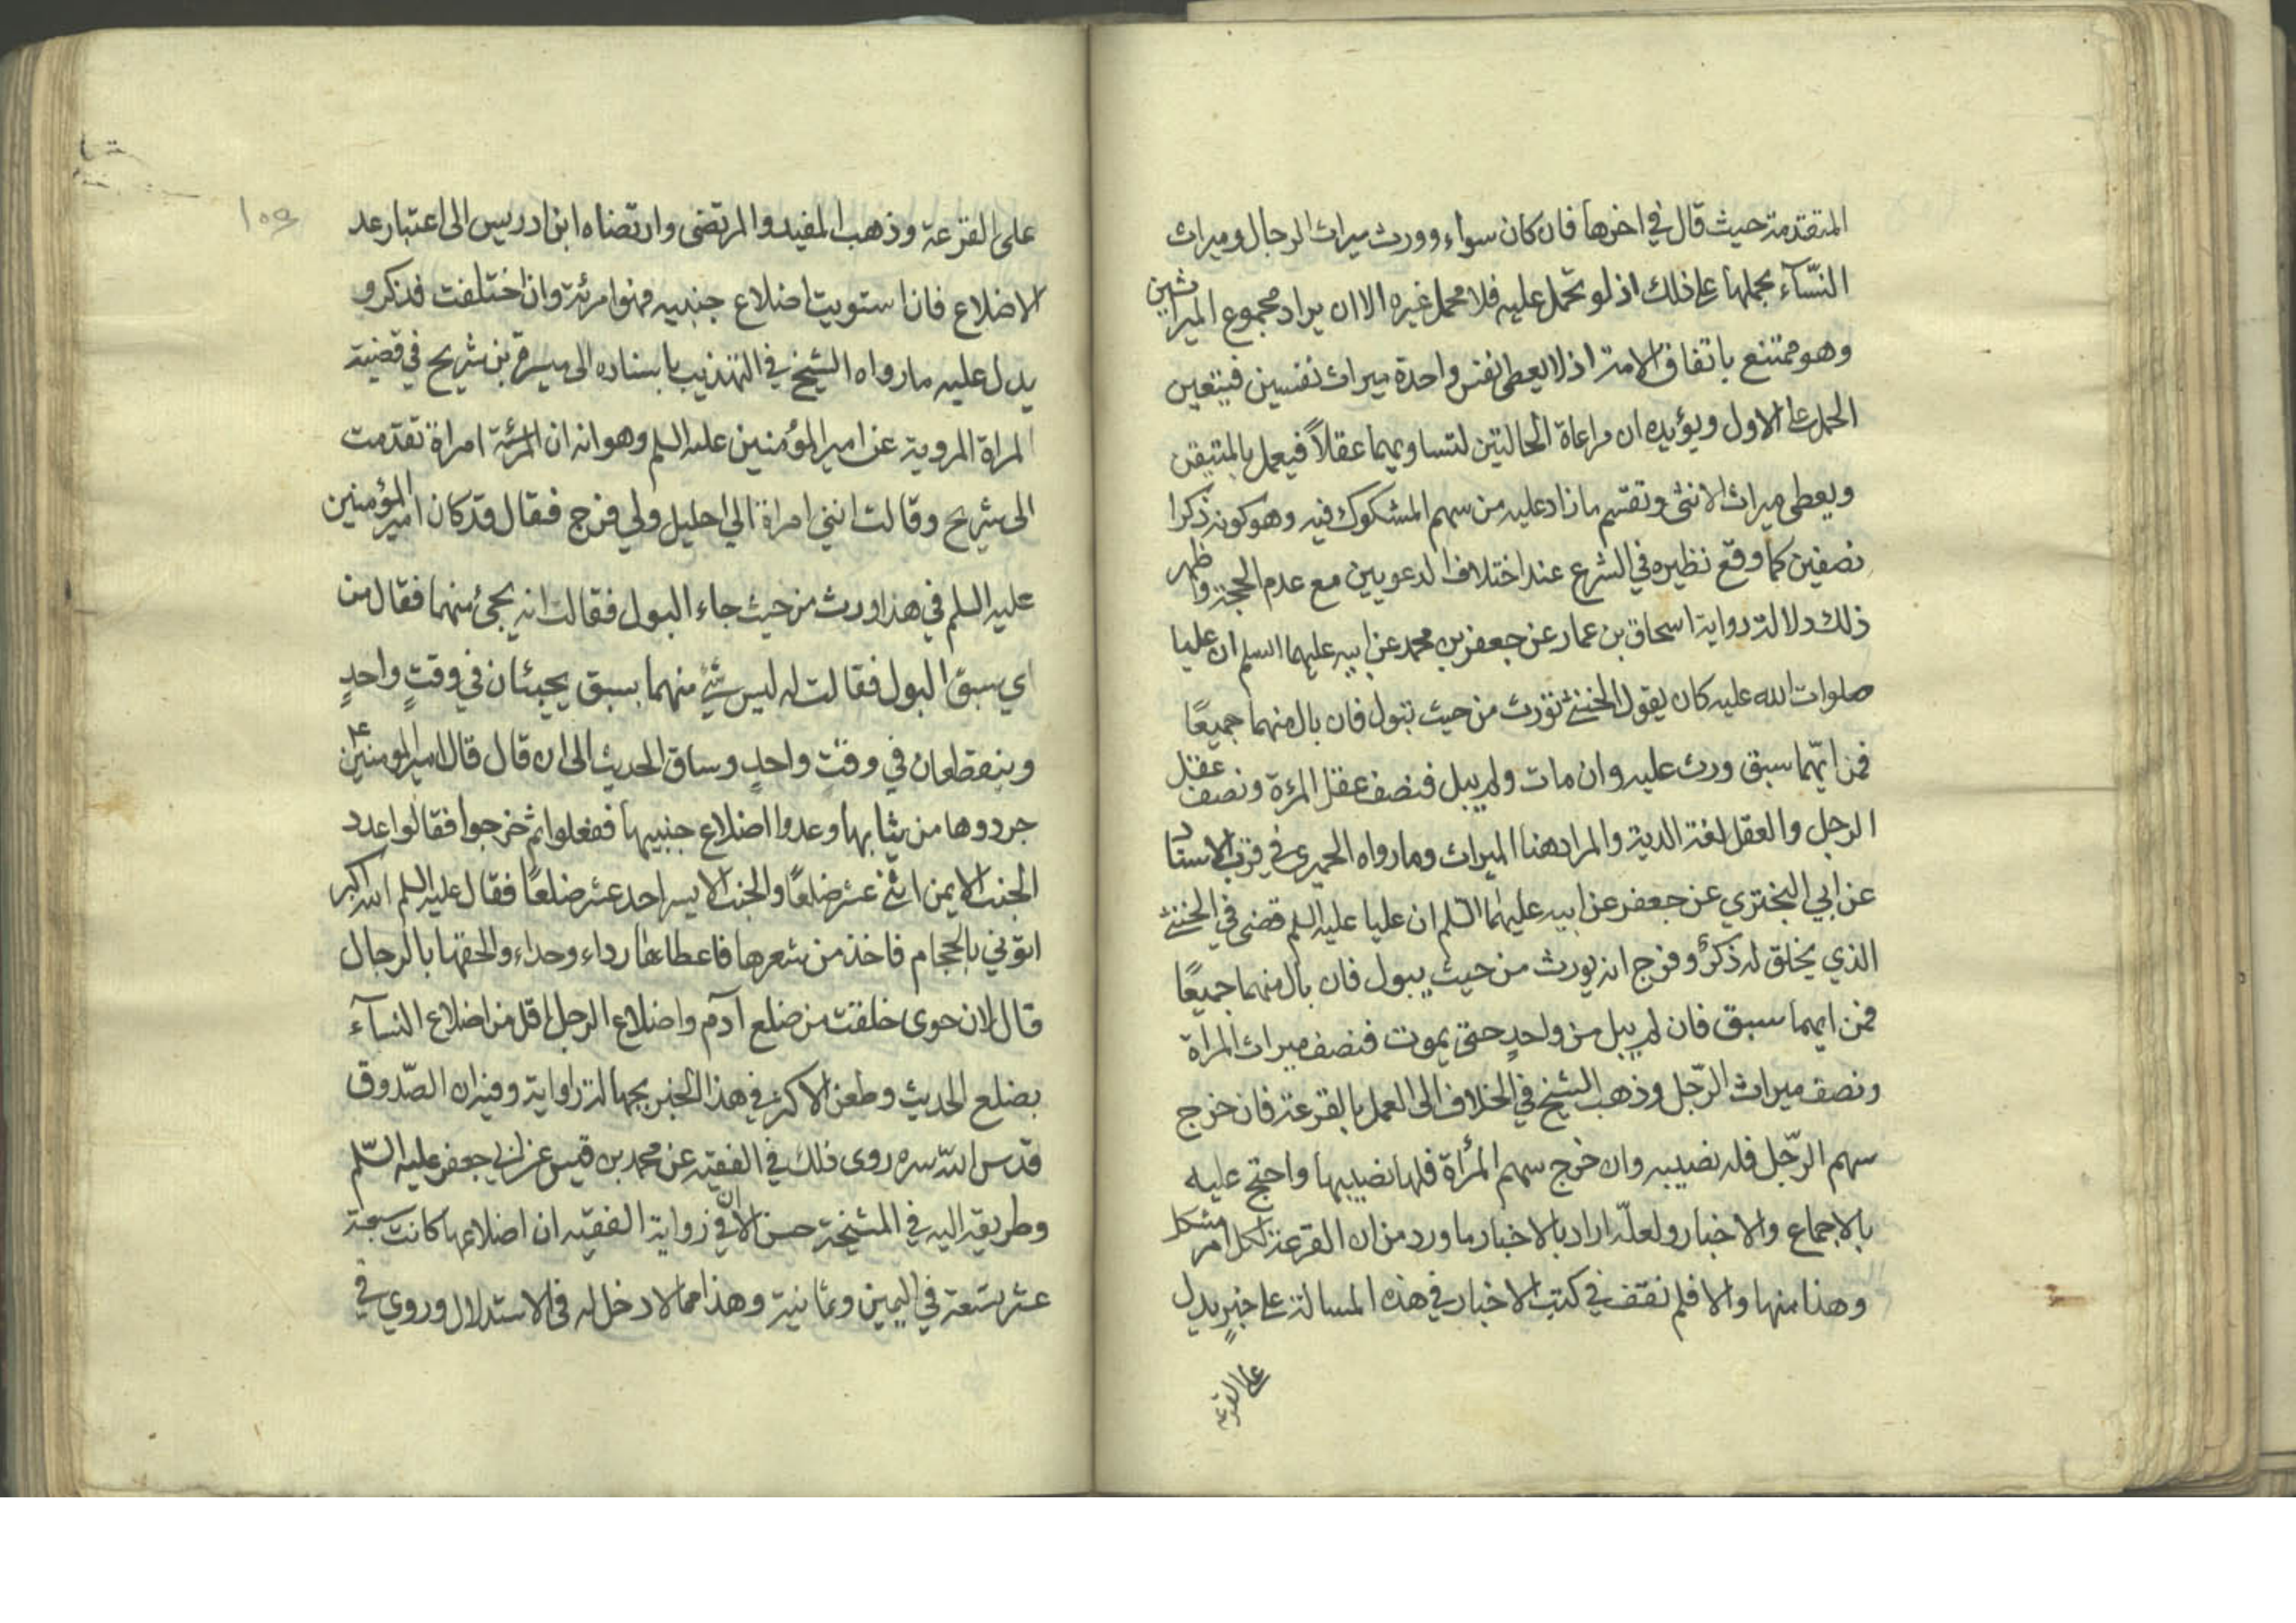 المتقدمة حيث قال في اخرها فان كان سواء وورث ميراث الرجال وميراث
النسّآء بجملها على ذلك اذ لو تحمل عليه فلا محمل غيره الا ان يراد مجموع الميراثين
وهو ممتنع باتفاق الامة اذ لا يعطى نفس واحدة ميراث نفسين فيتعين
الحمل على الاول ويؤيده ان مراعاة الحالتين لتساويهما عقلاً فيعمل بالمتيقن
ويعطى ميراث الانثى وتقسم ما زاد عليه من سهم المشكوك فيه وهو كونه ذكرا
نصفين كما وقع نظيره في الشرع عند اختلاف الدعويين مع عدم الحجة واظهر
ذلك دلالة رواية اسحاق بن عمار عن جعفر بن محمد عن ابيه عليهما السلم ان عليا
صلوات الله عليه كان يقول الخنثى تورث من حيث تبول فان بال منهما جميعًا
فمن ايّهما سبق ورث عليه وان مات ولم يبل فنصف عقل المرءة ونصف عقل
الرجل والعقل لغة الدية والمراد هنا الميراث وما رواه الحميري في قرب الاسناد
عن ابي البختري عن جعفر عن ابيه عليهما السّلم ان عليا عليه السلم قضى في الخنثى
الذي يخلق له ذكرٌ وفرج انه يورث من حيث يبول فان بال منهما جميعًا
فمن ايهما سبق فان لم يبل من واحدٍ حتى يموت فنصف ميراث المراة
ونصف ميراث الرّجل وذهب الشيخ في الخلاف الى العمل بالقرعة فان خرج
سهم الرّجل فله نصيبه وان خرج سهم المرأة فلها نصيبها واحتج عليه
بالاجماع والاخبار ولعلّه اراد بالاخبار ما ورد من ان القرعة لكل امر مشكل
وهذا منها والا فلم نقف في كتب الاخبار في هذه المسالة على خبرٍ يدل
على القرعة
١٥٩
على القرعة وذهب المفيد والمرتضى وارتضاه ابن ادريس الى اعتبار عد
الاضلاع فان استويت اضلاع جنبيه فهو امرئة وان اختلفت فذكر و
يدل عليه ما رواه الشيخ في التهذيب باسناده الى ميسرة بن شريح في قضية
المراة المروية عن امير المؤمنين عليه السلم وهو انه ان المرئة امراة تقدمت
الى شريح وقالت انني امراة الي احليل ولي فرج فقال قد كان امير المؤمنين
عليه السلم في هذا ورث من حيث جاء البول فقالت انه يجئ منهما فقال من
اي سبق البول فقالت له ليس شئ منهما بسبق يجيئان في وقتٍ واحدٍ
وينقطعان في وقتٍ واحدٍ وساق الحديث الى ان قال قال امير المومنين ع
جردوها من ثيابها وعدوا اضلاع جنبيها ففعلوا ثم خرجوا فقالوا عدد
الجنب الايمن اثني عشر ضلعًا والجنب الايسر احد عشر ضلعًا فقال عليه السلم الله اكبر
اتوني بالحجام فاخذ من شعرها فاعطاها رداء وحذاء والحقها بالرجال
قال لان حوى خلقت من ضلع آدم واضلاع الرجل اقل من اضلاع النسآء
بضلع الحديث وطعن الاكثر في هذا الخبر بجهالة راواية وفيه ان الصّدوق
قدس الله سره روى ذلك في الفقيه عن محمد بن قيس عن ابي جعفر عليه السّلم
وطريقه اليه في المشيخة حسن الا ان في رواية الفقيه ان اضلاعها كانت سبعة
عشر تسعة في اليمين وثمانية وهذا مما لا دخل له في الاستدلال وروي في